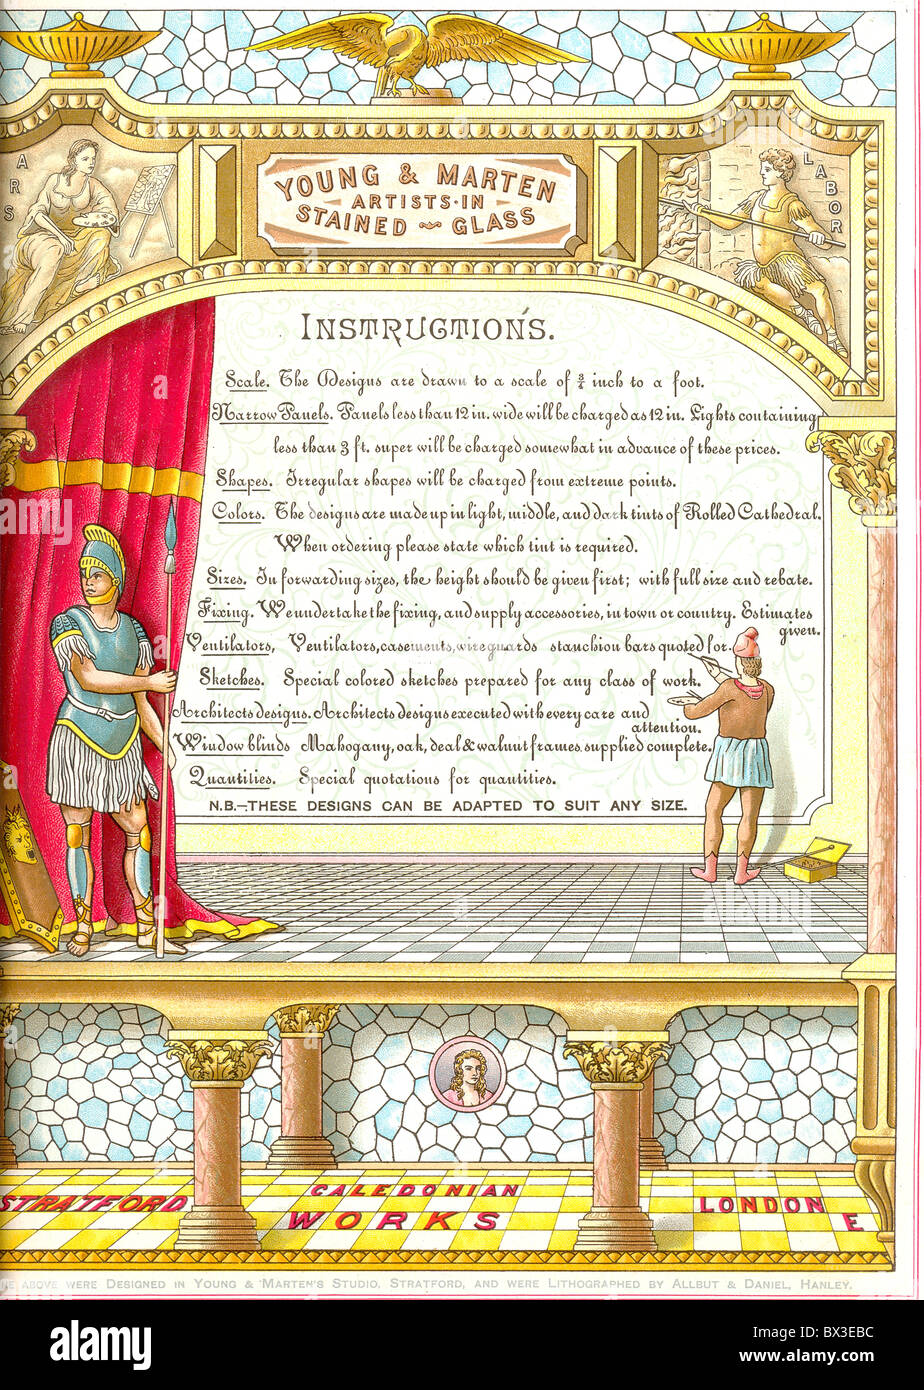 ARS
LABOR
YOUNG & MARTEN
ARTISTS·IN
STAINED ~ GLASS
INSTRUCTIONS.
Scale. The Designs are drawn to a scale of ¾ inch to a foot.
Narrow Panels. Panels less than 12 in. wide will be charged as 12 in. Lights containing
less than 3 ft. super will be charged somewhat in advance of these prices.
Shapes. Irregular shapes will be charged from extreme points.
Colors. The designs are made up in light, middle, and dark tints of Rolled Cathedral.
When ordering please state which tint is required.
Sizes. In forwarding sizes, the height should be given first; with full size and rebate.
Fixing. We undertake the fixing, and supply accessories, in town or country. Estimates
given.
Ventilators, Ventilators, casements, wire guards stanchion bars quoted for.
Sketches. Special colored sketches prepared for any class of work.
Architects designs. Architects designs executed with every care and
attention.
Window blinds Mahogany, oak, deal & walnut frames supplied complete.
Quantities. Special quotations for quantities.
N.B.—THESE DESIGNS CAN BE ADAPTED TO SUIT ANY SIZE.
STRATFORD CALEDONIAN LONDON
WORKS E
ABOVE WERE DESIGNED IN YOUNG & MARTEN'S STUDIO, STRATFORD, AND WERE LITHOGRAPHED BY ALLBUT & DANIEL, HANLEY.
alamy
alamy
Image ID: BX3EBC
www.alamy.com